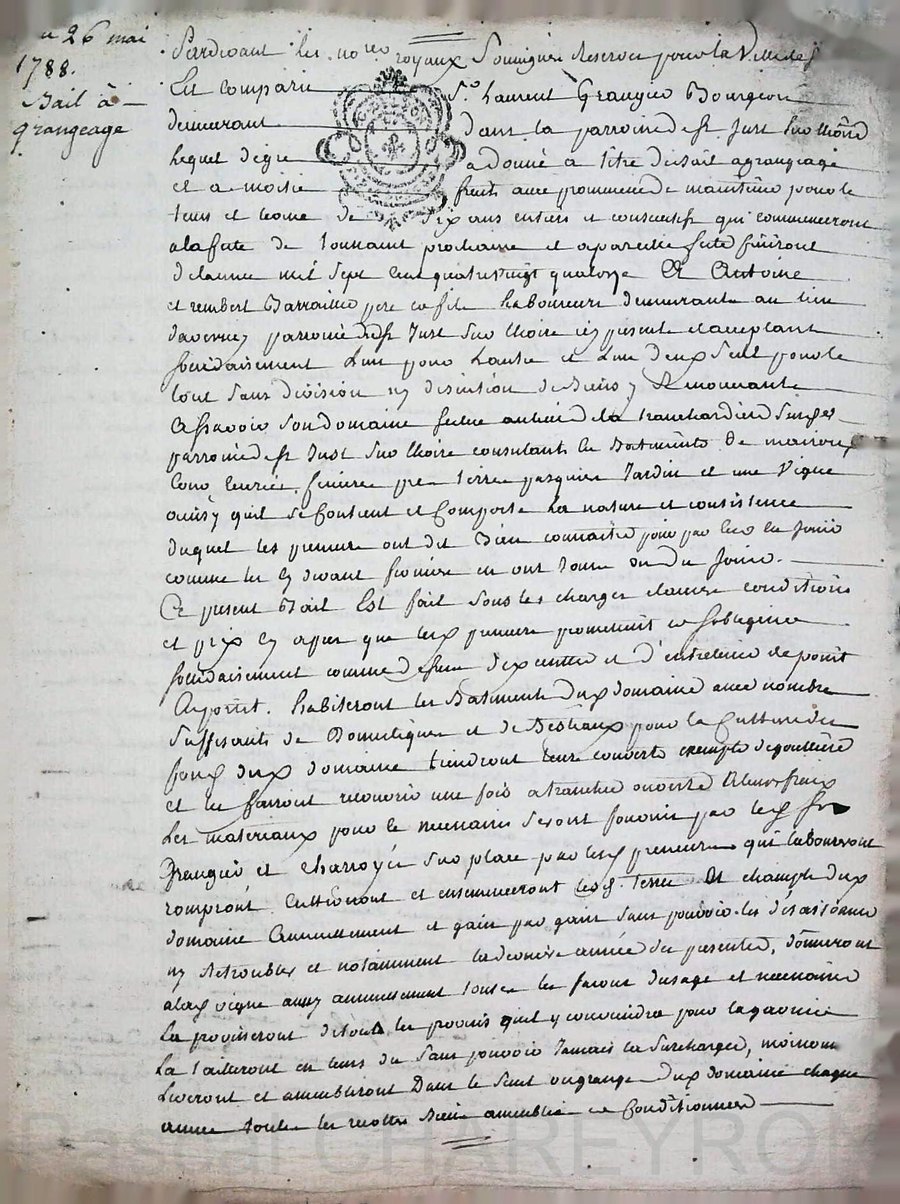 26 mai
1788.
Bail à
grangeage
Pardevant les no.res royaux soussignés Reservé pour la Ville de
Est comparu Sr. Laurent Grangier Bourgeois
demeurant dans la parroisse de St Just sur Loire
Lequel de gré a donné a titre de bail a grangeage
et a moitié fruits avec promesse de maintenir pour le
tems et terme de six ans entiers et consecutifs qui commenceront
a la fete de Toussaint prochaine et a pareille fete finiront
de l'année mil sept cent quatrevingt quatorze A Antoine
et rembert Barrallier pere et fils Laboureurs demeurants au lieu
parroisse de St Just sur Loire icy presents et acceptant
solidairement L'un pour L'autre et L'un d'eux seul pour le
tout sans division ny discution de Biens y Renoncant
Assavoir son domaine scitué
parroisse de St Just sur Loire consistant en Batiments de maison
cour Ecurie feniere pré terres pasquier Jardin et une Vigne
ainsy qu'il se Contient et Comporte La nature et consistence
duquel les preneurs ont dit Bien connaitre pour par eux en Jouir
comme les cy devant fermiers en ont Joui ou du Jouir.
Le present Bail Est fait sous les charges clauses conditions
et prix cy apres que lesd preneurs promettent et s'obligent
solidairement comme dessus d'executer et d'entretenir de point
En point. habiteront les Batiments dud domaine avec nombre
suffisants de Domestiques et de Bestiaux pour la Culture des
fonds dud domaine tiendront leurs couverts exempts de gouttiere
et les fairont recouvrir une fois a tranchée ouverte a leurs fraix
Les materiaux pour ce necessaires seront fournis par led Sr
Grangier et charroyés sur place par lesd preneurs qui laboureront
rompront Cultiveront et ensemenceront lesd. Terres et champs dud
domaine Annuellement et gain par gain sans pouvoir les désaisonner
ny Retroubler et notamment la derniere année des presentes, donneront
a lad vigne aussy annuellement toutes les facons d'usage et necessaires
La provigneront de tous les provins qu'il y conviendra pour la garnir
La tailleront en tems du sans pouvoir Jamais la surcharger, moissonneront
Leveront et assembleront Dans le suel ou grange dud domaine chaque
année toutes les recoltes Bien assemblées et Conditionnées
Pascal CHAREYRON